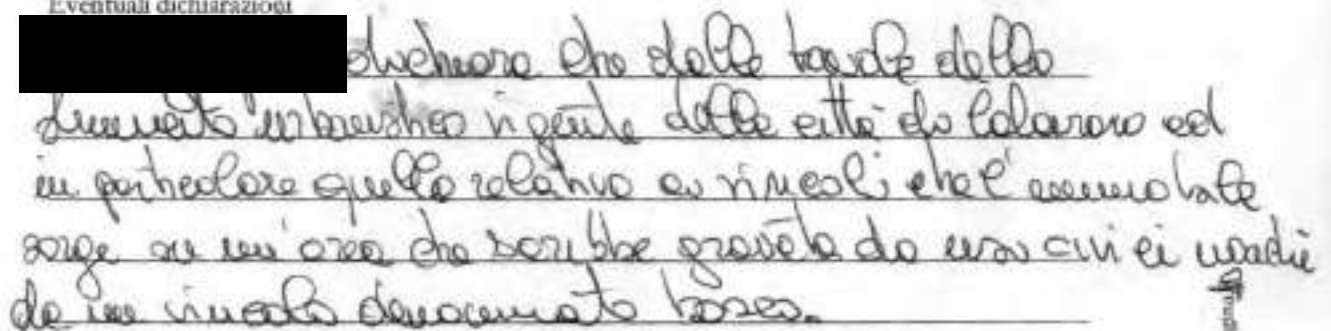 Eventuali dichiarazioni
dichiara che dalle tavole dello
strumento urbanistico vigente della città di Catanzaro ed
in particolare quello relativo ai vincoli che l'immobile
sorge su un'area che sarebbe gravata da uso civici
da un vincolo denominato bosco.